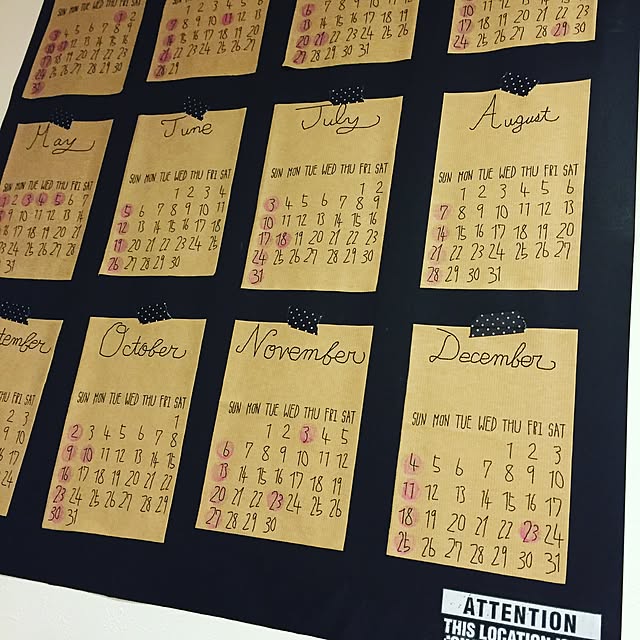 SUN MON TUE WED THU FRI SAT
1 2
3 4 5 6 7 8 9
10 11 12 13 14 15 16
17 18 19 20 21 22 23
24 25 26 27 28 29 30
31
SUN MON TUE WED THU FRI SAT
1 2 3 4 5 6
7 8 9 10 11 12 13
14 15 16 17 18 19 20
21 22 23 24 25 26 27
28 29
6 7 8 9 10 11 12
13 14 15 16 17 18 19
20 21 22 23 24 25 26
27 28 29 30 31
10 11 12 13 14 15 16
17 18 19 20 21 22 23
24 25 26 27 28 29 30
May
SUN MON TUE WED THU FRI SAT
1 2 3 4 5 6 7
8 9 10 11 12 13 14
16 17 18 19 20 21
23 24 25 26 27 28
30 31
June
SUN MON TUE WED THU FRI SAT
1 2 3 4
5 6 7 8 9 10 11
12 13 14 15 16 17 18
19 20 21 22 23 24 25
26 27 28 29 30
July
SUN MON TUE WED THU FRI SAT
1 2
3 4 5 6 7 8 9
10 11 12 13 14 15 16
17 18 19 20 21 22 23
24 25 26 27 28 29 30
31
August
SUN MON TUE WED THU FRI SAT
1 2 3 4 5 6
7 8 9 10 11 12 13
14 15 16 17 18 19 20
21 22 23 24 25 26 27
28 29 30 31
tember
THU FRI SAT
2 3
9 10
16 17
24
October
SUN MON TUE WED THU FRI SAT
1
2 3 4 5 6 7 8
9 10 11 12 13 14 15
16 17 18 19 20 21 22
23 24 25 26 27 28 29
30 31
November
SUN MON TUE WED THU FRI SAT
1 2 3 4 5
6 7 8 9 10 11 12
13 14 15 16 17 18 19
20 21 22 23 24 25 26
27 28 29 30
December
SUN MON TUE WED THU FRI SAT
1 2 3
4 5 6 7 8 9 10
11 12 13 14 15 16 17
18 19 20 21 22 23 24
25 26 27 28 29 30 31
ATTENTION
THIS LOCATION